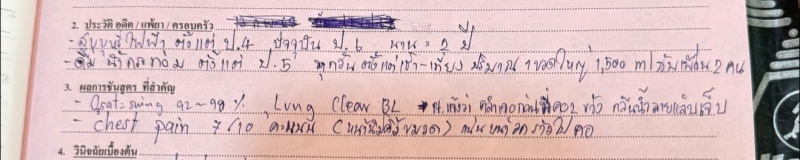 2. ประวัติ อดีต / แพ้ยา / ครอบครัว
- สูบบุหรี่ไฟฟ้า ตั้งแต่ ป.4 ปัจจุบัน ป.6 นาน = 2 ปี
- ดื่ม น้ำกระท่อม ตั้งแต่ ป.5 ทุกวัน ตั้งแต่เช้า-เที่ยง ปริมาณ 1 ขวดใหญ่ 1,500 ml กับเพื่อน 2 คน
3. ผลการชันสูตร ที่สำคัญ
- O2sat = swing 92-98 % Lung Clear BL กลืนน้ำลายแล้วเจ็บ
- Chest pain 7/10 คะแนน แน่นหน้าอก ไปคอ
4. วินิจฉัยเบื้องต้น